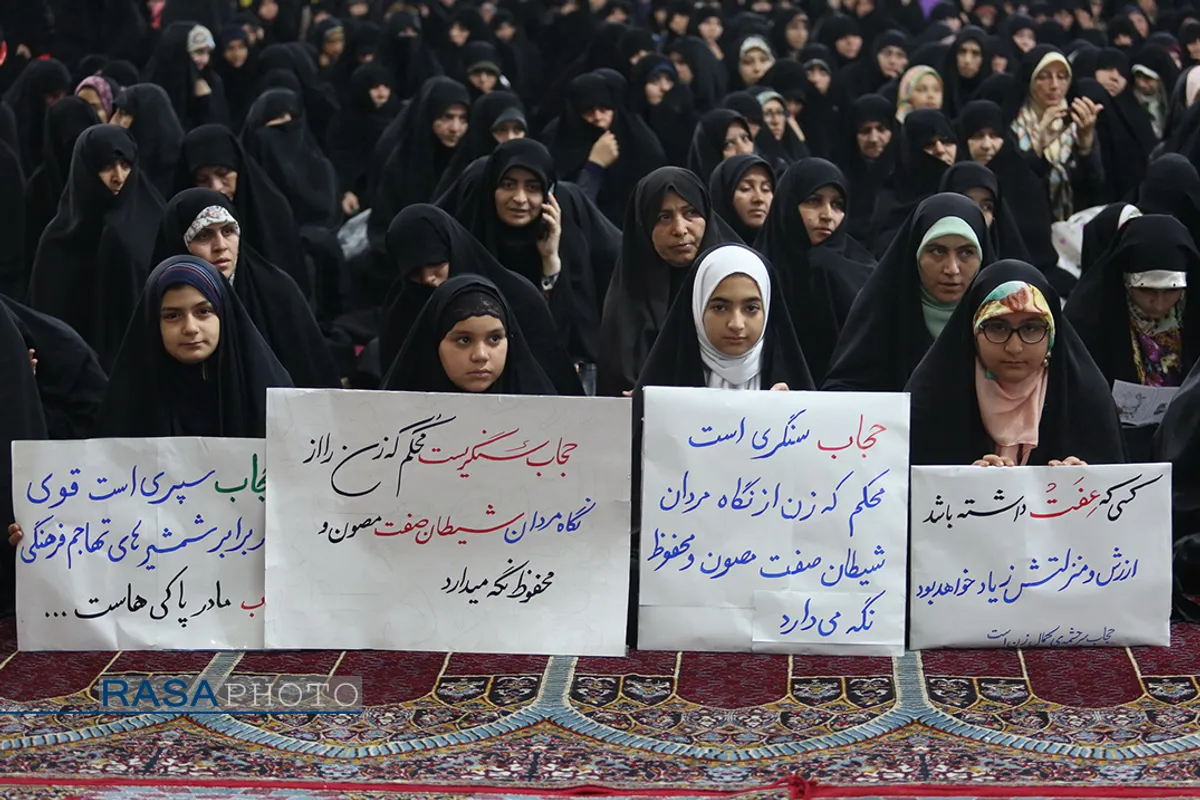 حجاب سپری است قوی
برابر شمشیرهای تهاجم فرهنگی
مادر پاکی هاست ...
حجاب سنگریست محکم که زن را از
نگاه مردان شیطان صفت مصون و
محفوظ نگه میدارد
حجاب سنگری است
محکم که زن از نگاه مردان
شیطان صفت مصون و محفوظ
نگه می دارد
کسی که عِفَّت داشته باشد
ارزش و منزلتش زیاد خواهد بود
RASAPHOTO